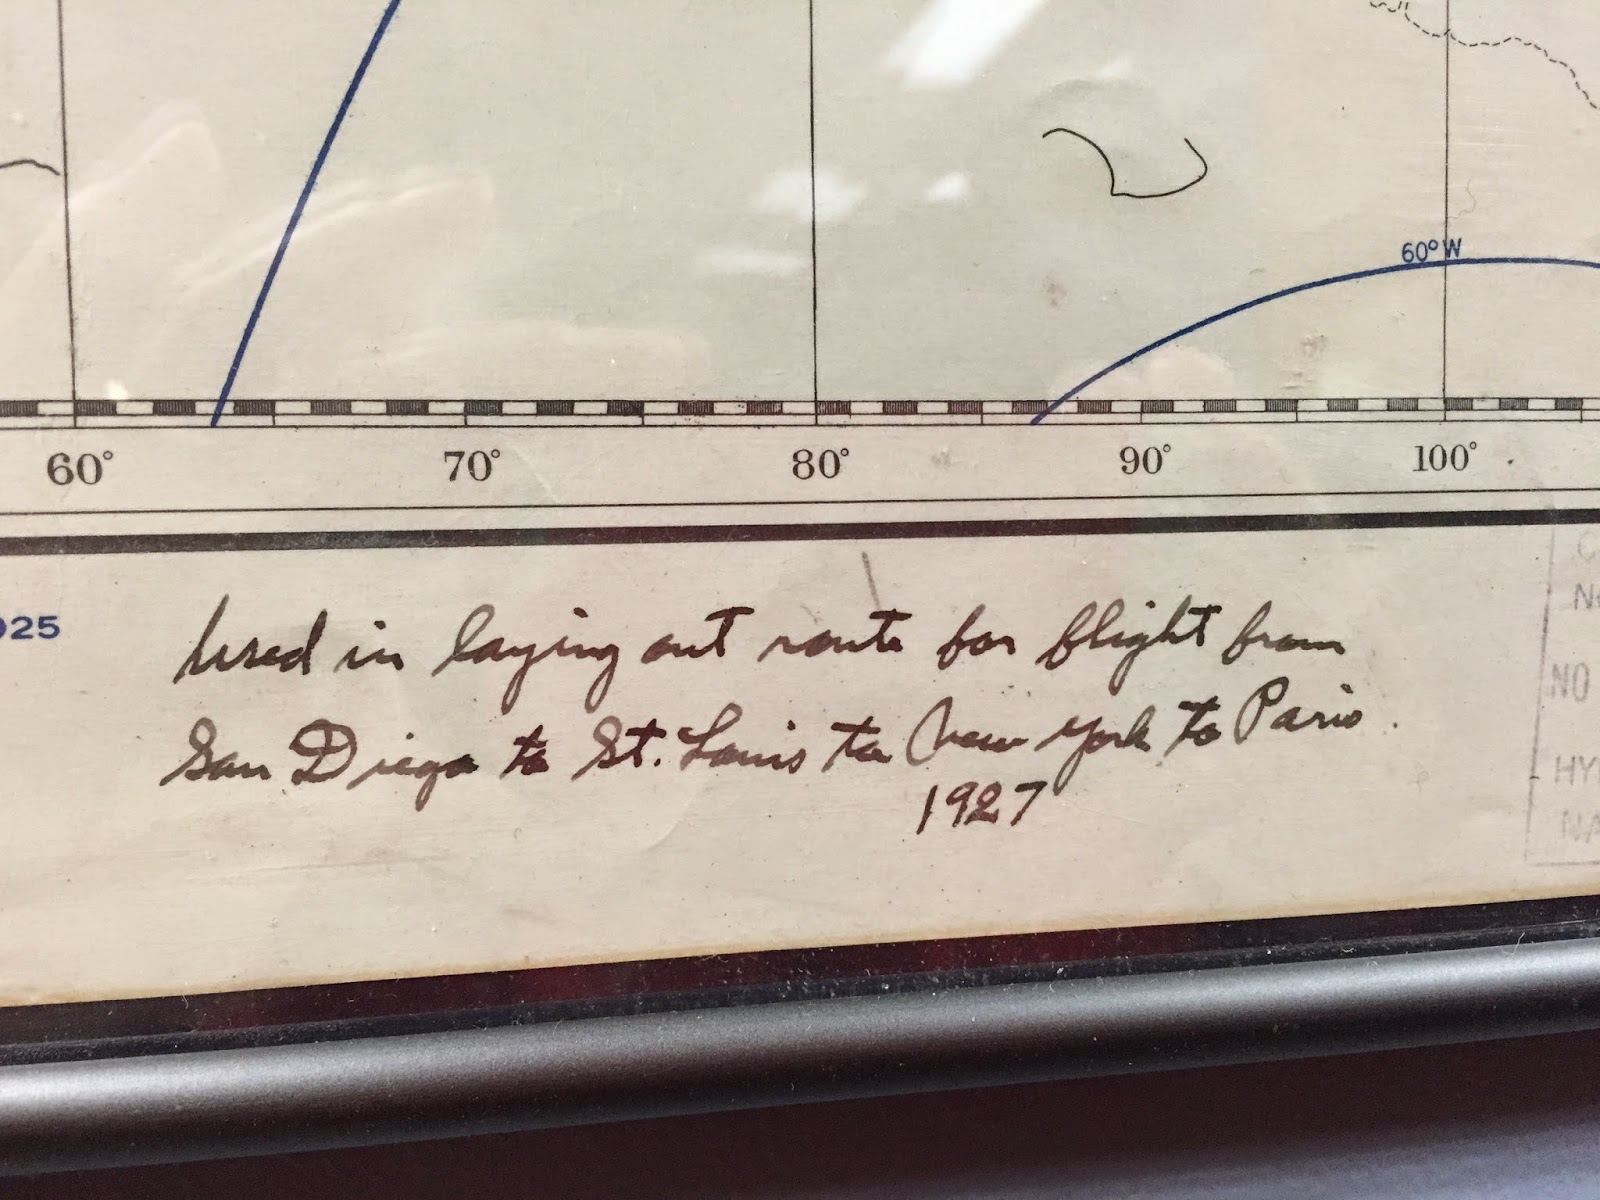 60° W
60° 70° 80° 90° 100°
Used in laying out route for flight from
San Diego to St. Louis to New York to Paris.
1927
NO